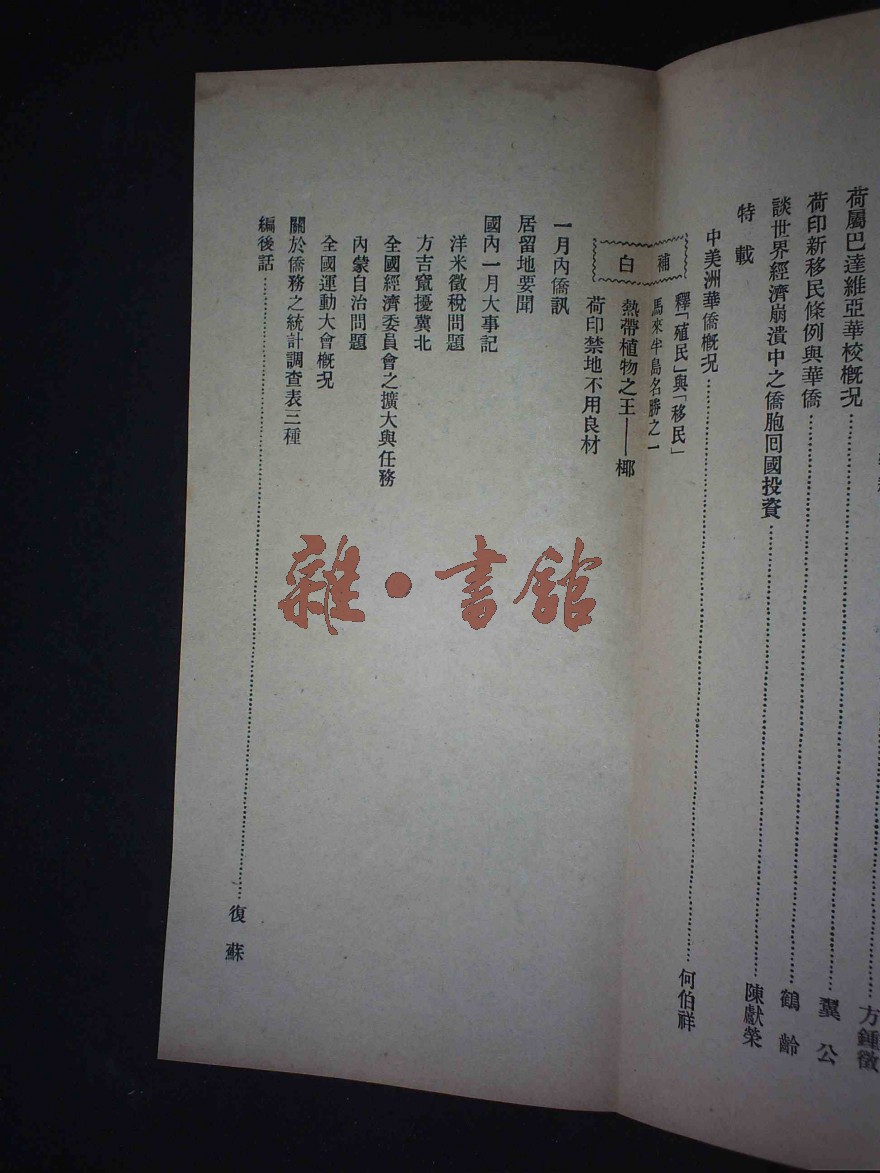 方鍾徵
荷屬巴達維亞華校概況……翼公
荷印新移民條例與華僑……鶴齡
談世界經濟崩潰中之僑胞囘國投資……陳獻榮
特載
中美洲華僑概况……何伯祥
補白
釋「殖民」與「移民」
馬來半島名勝之一
熱帶植物之王——椰
荷印禁地不用良材
一月內僑訊
居留地要聞
國內一月大事記
洋米徵稅問題
方吉竄擾冀北
全國經濟委員會之擴大與任務
內蒙自治問題
全國運動大會概况
關於僑務之統計調查表三種
編後話……復蘇
雜·書館